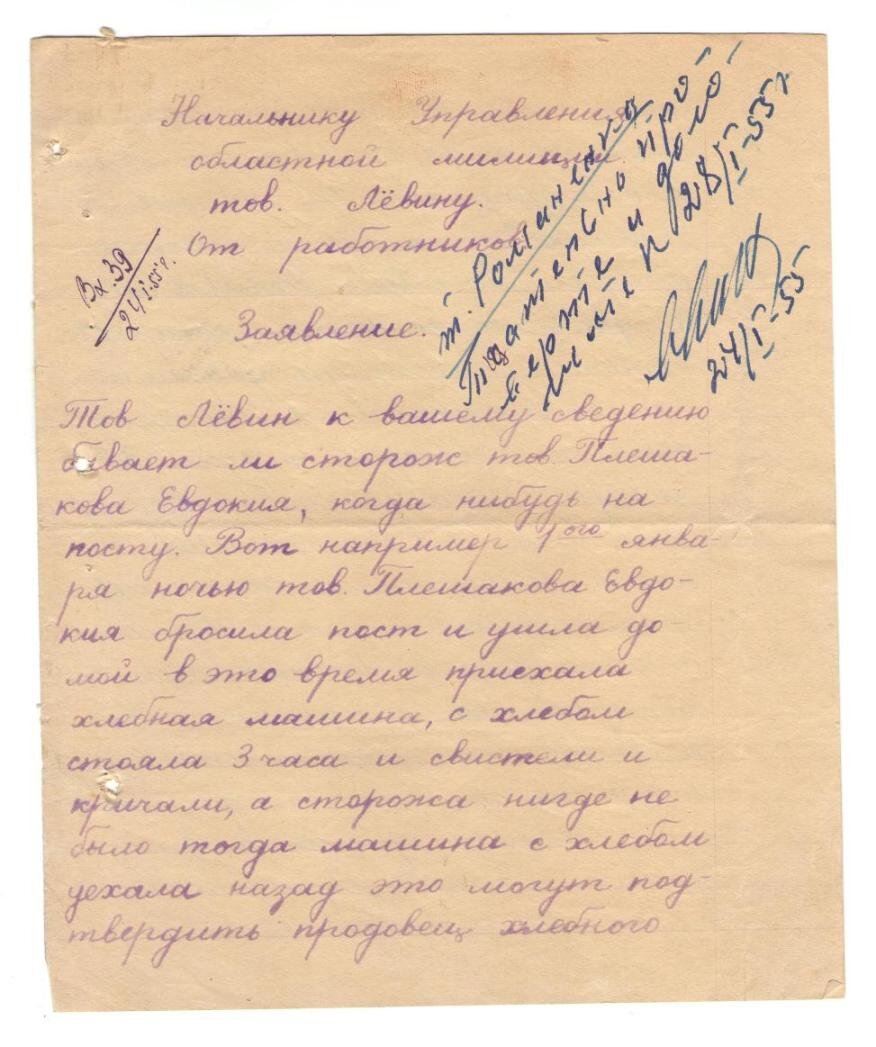 Начальнику Управления
областной милиции
тов. Лёвину.
От работников
Заявление.
Вх. 39
24/I-55 г.
т. Романенко
Тщательно про-
верте и доло-
жите к 28/I-55 г
24/I-55
Тов Лёвин к вашему сведению
бывает ли сторож тов. Плеша-
кова Евдокия, когда нибудь на
посту. Вот например 1ого янва-
ря ночью тов. Плешакова Евдо-
кия бросила пост и ушла до-
мой в это время приехала
хлебная машина, с хлебом
стояла 3 часа и свистели и
кричали, а сторожа нигде не
было тогда машина с хлебом
уехала назад это могут под-
твердить продовец хлебного